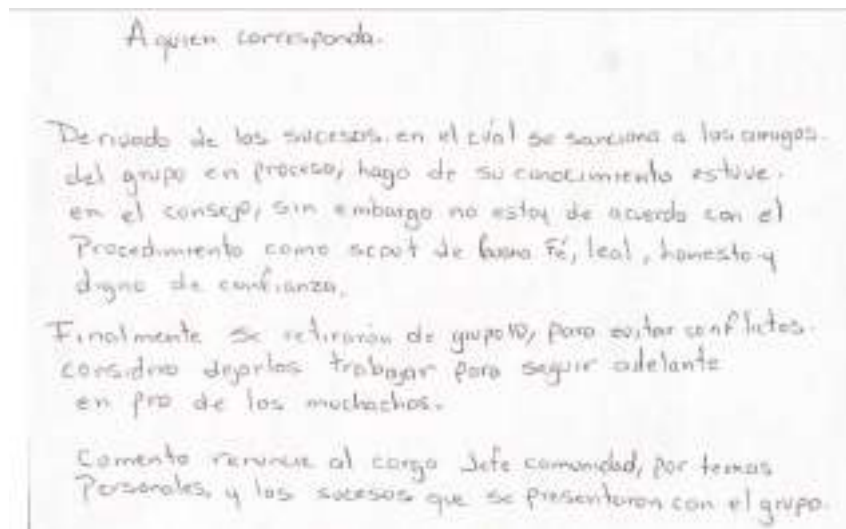 A quien corresponda.
Derivado de los sucesos. en el cuál se sanciona a los amigos.
del grupo en proceso, hago de su conocimiento estuve.
en el consejo, sin embargo no estoy de acuerdo con el
Procedimiento como scout de buena Fé, leal, honesto y
digno de confianza.
Finalmente se retiraron de grupo 10, para evitar conflictos.
considero dejarlos trabajar para seguir adelante
en pro de los muchachos.
Comento renuncie al cargo Jefe comunidad, por temas
Personales, y los sucesos que se presentaron con el grupo.